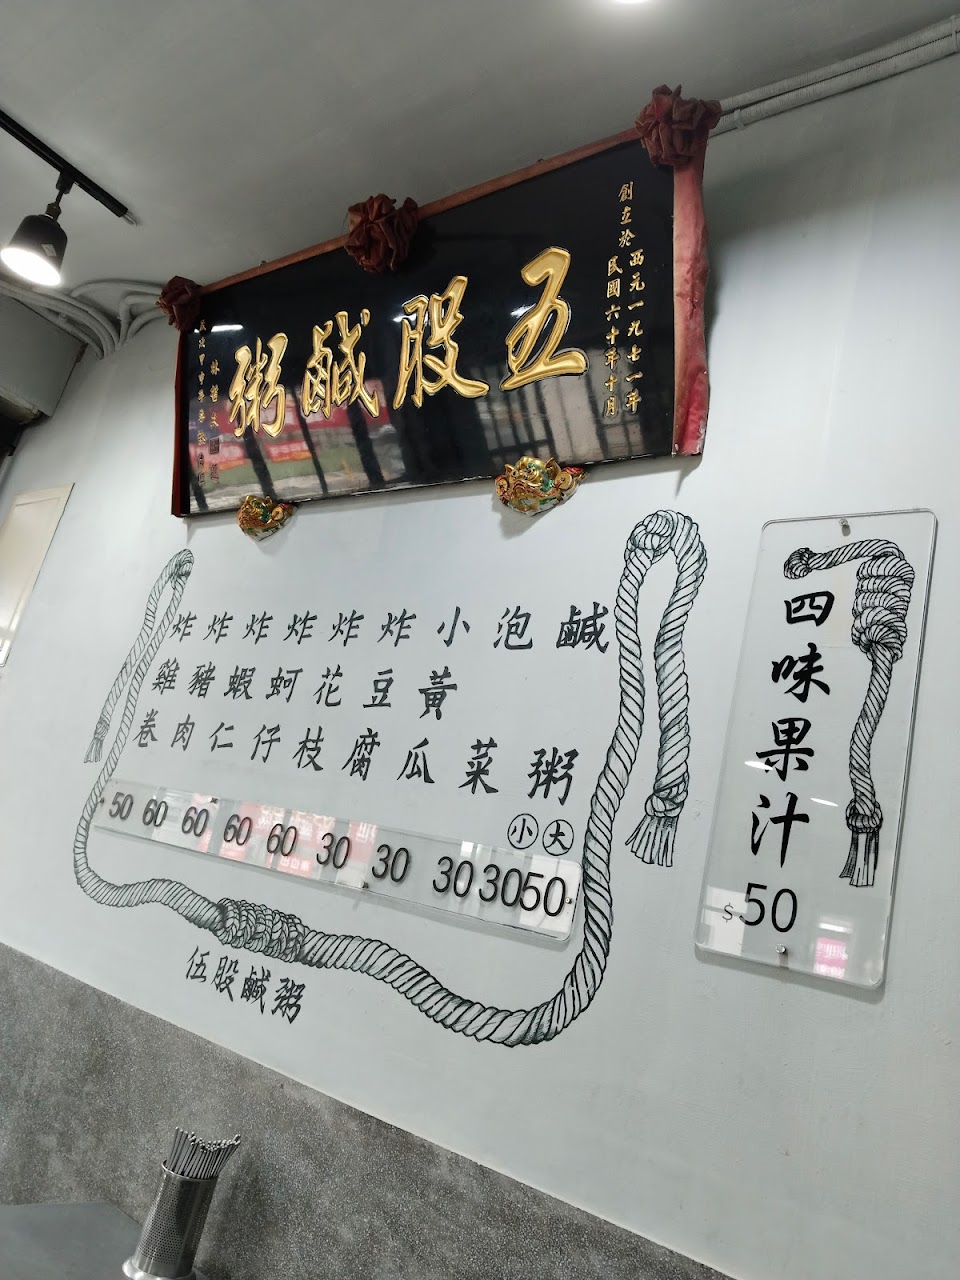 創立於西元一九七一年
民國六十年十月
五股鹹粥
鹹粥
泡菜
小黃瓜
炸豆腐
炸花枝
炸蚵仔
炸蝦仁
炸豬肉
炸雞卷
小 大
50 60 60 60 60 30 30 30 30 50
伍股鹹粥
四味果汁
$50